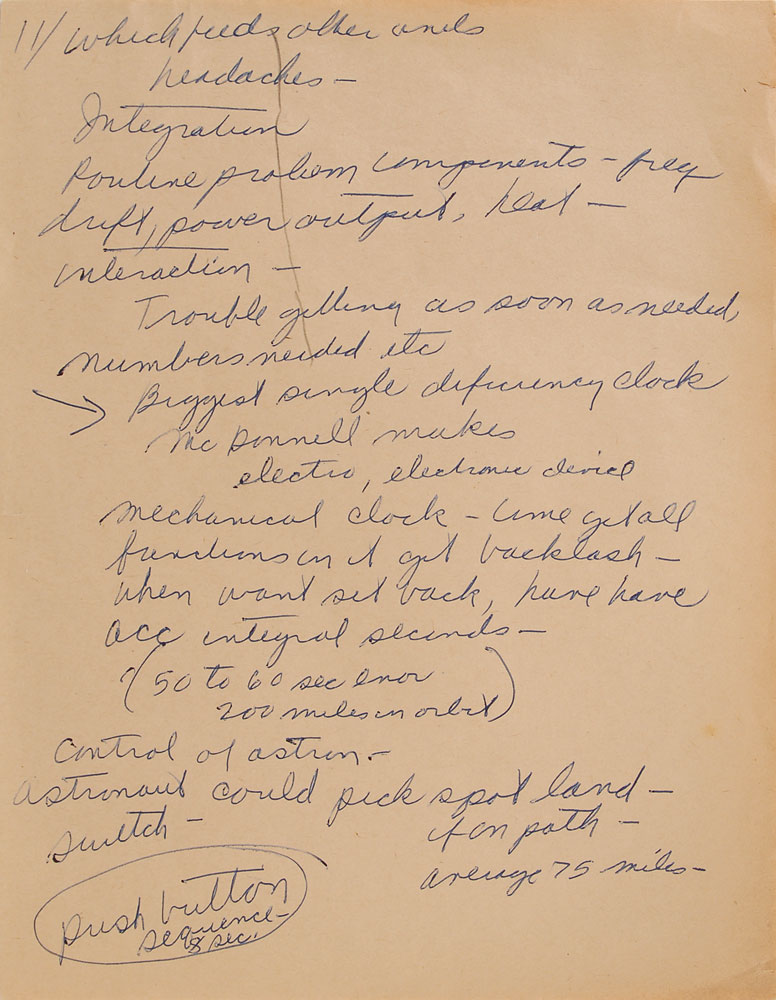 11/ which feeds other ends
headaches —
Integration
Routine problem components — freq
drift, power output, heat —
interaction —
Trouble getting as soon as needed,
numbers needed etc
→ Biggest single deficiency clock
McDonnell makes
electro, electronic device
mechanical clock — time get all
functions in it get backlash —
when want set back, have have
acc integral seconds —
? (50 to 60 sec error
200 miles in orbit)
Control of astron. —
astronaut could pick spot land —
switch — if on path —
average 75 miles —
push button
sequence —
8 sec.